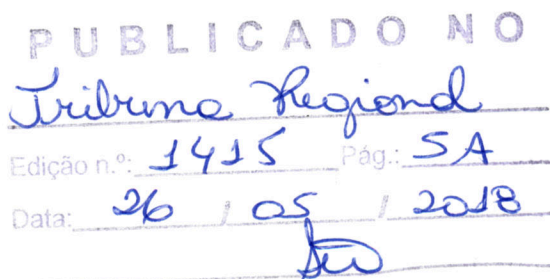 PUBLICADO NO
Tribuna Regional
Edição n.º: 1415 Pág.: 5A
Data: 26 / 05 / 2018